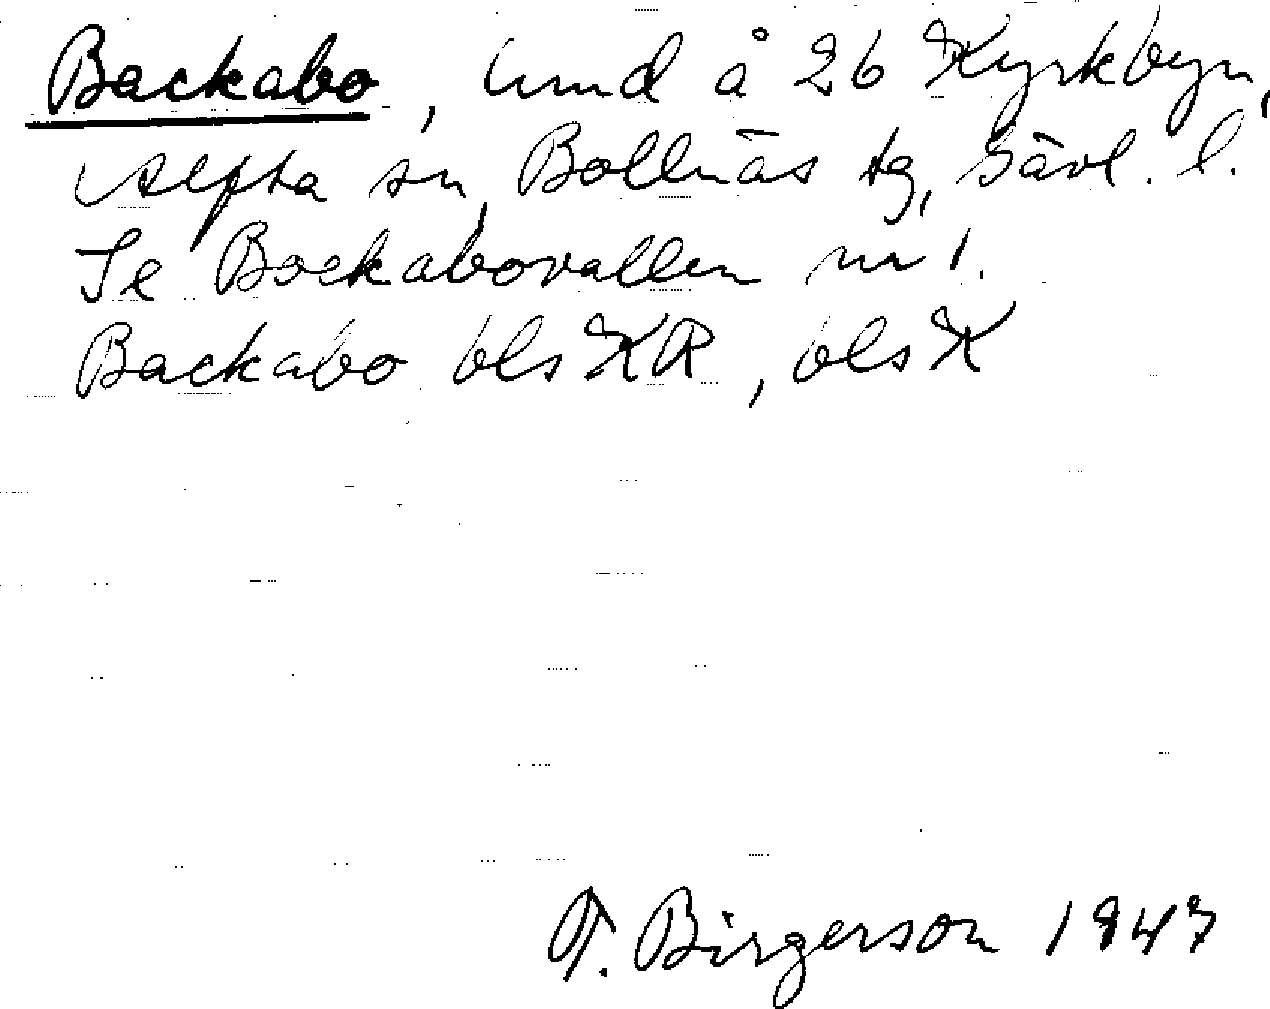 Backabo, lund å 26 Kyrkbyn,
Alfta sn, Bollnäs tg, Gävl. l.
Se Backabovallen nr 1.
Backabo bls KR, bls K
T. Birgerson 1947